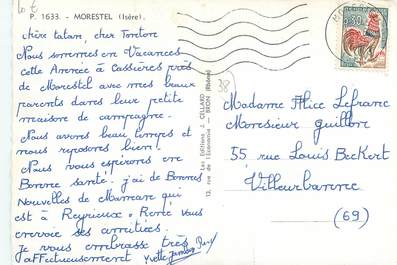 10 €
P. 1633. - MORESTEL (Isère).
chère tatan, cher Tonton
Nous sommes en Vacances
cette Année à Cassières près
de Morestel avec mes beaux
parents dans leur petite
maison de campagne.
Nous avons beau temps et
nous reposons bien!
Nous vous espérons en
Bonne santé! j'ai de Bonnes
Nouvelles de Maman qui
est à Reyrieux. René vous
envoie ses amitiés.
Je vous embrasse très
affectueusement Yvette
Les Editions J. CELLARD
BRON (Rhône)
38
0,30
Madame Alice Lefranc
Monsieur Guillon
55 rue Louis Beckert
Villeurbanne
(69)